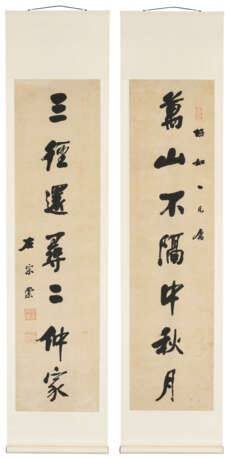 萬山不隔中秋月
三徑還尋二仲家
左宗棠